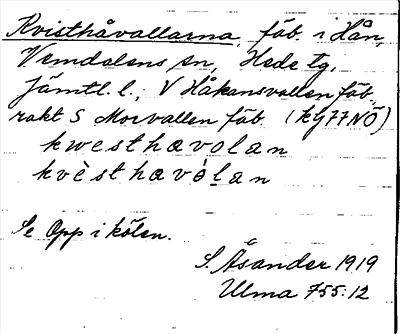 Kvisthåvallarna, fäb. i Hån,
Vemdalens sn, Hede tg,
Jämtl. l.; V Håkansvallen fäb.,
rakt S Morvallen fäb. (kg77NÖ)
kwesthavolan
kvèsthavòlan
Se Opp i kölen.
S. Åsander 1919
Ulma 755:12